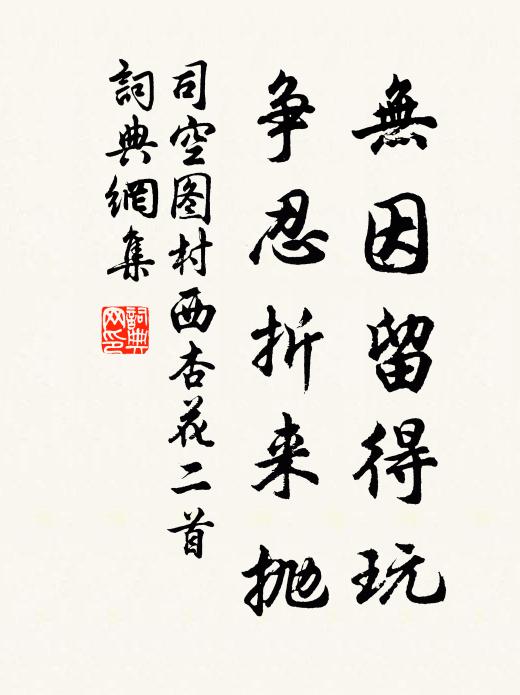 無因留得玩
争忍折来抛
司空图村西杏花二首
詞典網集
詞典
网印